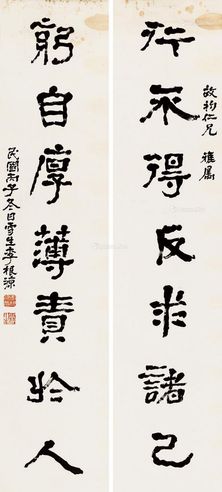 行不得反求諸己
故均仁兄 雅属
躬自厚薄責於人
民國丙子冬日雪生李根源